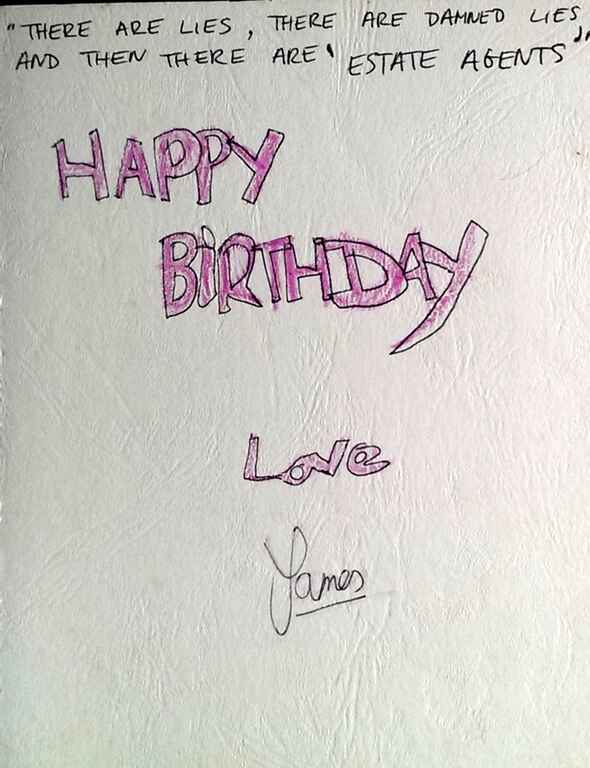 "THERE ARE LIES, THERE ARE DAMNED LIES,
AND THEN THERE ARE 'ESTATE AGENTS'"
HAPPY
BiRTHDAY
Love
James